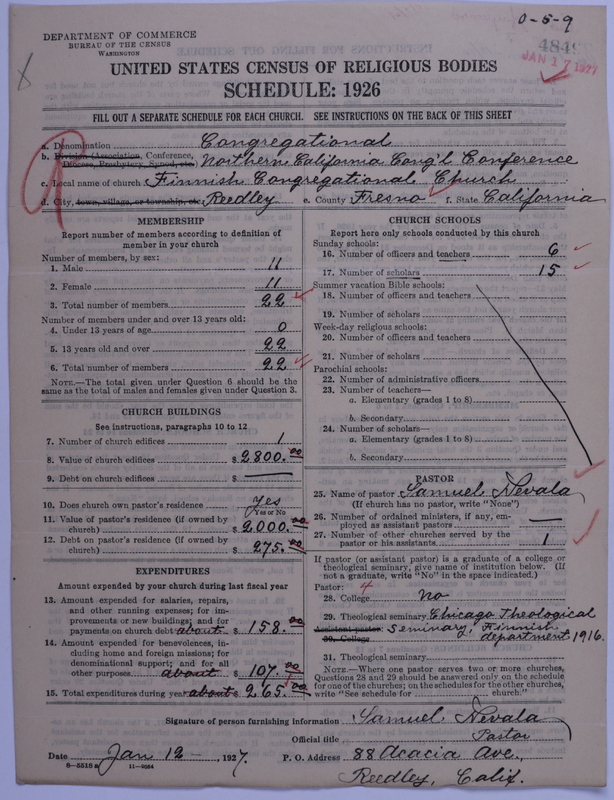 0-5-9
DEPARTMENT OF COMMERCE
BUREAU OF THE CENSUS
WASHINGTON
JAN 17 1927
UNITED STATES CENSUS OF RELIGIOUS BODIES
SCHEDULE: 1926
FILL OUT A SEPARATE SCHEDULE FOR EACH CHURCH. SEE INSTRUCTIONS ON THE BACK OF THIS SHEET
a. Denomination Congregational
b. Division (Association, Conference, Diocese, Presbytery, Synod, etc. Northern California Cong'l Conference
c. Local name of church Finnish Congregational Church
d. City, town, village, or township, etc. Reedley e. County Fresno f. State California
MEMBERSHIP
Report number of members according to definition of
member in your church
Number of members, by sex:
1. Male 11
2. Female 11
3. Total number of members 22
Number of members under and over 13 years old:
4. Under 13 years of age 0
5. 13 years old and over 22
6. Total number of members 22
NOTE.—The total given under Question 6 should be the
same as the total of males and females given under Question 3.
CHURCH BUILDINGS
See instructions, paragraphs 10 to 12
7. Number of church edifices 1
8. Value of church edifices $ 2800.00
9. Debt on church edifices $ —
10. Does church own pastor's residence? Yes
Yes or No
11. Value of pastor's residence (if owned by
church) $ 2000.00
12. Debt on pastor's residence (if owned by
church) $ 275.00
EXPENDITURES
Amount expended by your church during last fiscal year
13. Amount expended for salaries, repairs,
and other running expenses; for im-
provements or new buildings; and for
payments on church debt about $ 158.00
14. Amount expended for benevolences, in-
cluding home and foreign missions; for
denominational support; and for all
other purposes about $ 107.00
15. Total expenditures during year about $ 265.00
CHURCH SCHOOLS
Report here only schools conducted by this church
Sunday schools:
16. Number of officers and teachers 6
17. Number of scholars 15
Summer vacation Bible schools:
18. Number of officers and teachers
19. Number of scholars
Week-day religious schools:
20. Number of officers and teachers
21. Number of scholars
Parochial schools:
22. Number of administrative officers
23. Number of teachers—
a. Elementary (grades 1 to 8)
b. Secondary
24. Number of scholars—
a. Elementary (grades 1 to 8)
b. Secondary
PASTOR
25. Name of pastor Samuel Nevala
(If church has no pastor, write "None")
26. Number of ordained ministers, if any, em-
ployed as assistant pastors —
27. Number of other churches served by the
pastor or his assistants 1
If pastor (or assistant pastor) is a graduate of a college or
theological seminary, give name of institution below. (If
not a graduate, write "No" in the space indicated.)
Pastor: 4
28. College No
29. Theological seminary Chicago Theological
Assistant pastor: Seminary, Finnish
30. College department 1916.
31. Theological seminary
NOTE.—Where one pastor serves two or more churches,
Questions 28 and 29 should be answered only on the schedule
for one of the churches; on the schedules for the other churches,
write "See schedule for church."
Signature of person furnishing information Samuel Nevala
Official title Pastor
Date Jan 12, 1927. P. O. Address 88 Acacia Ave.,
8—5519 a 11—9084 Reedley, Calif.